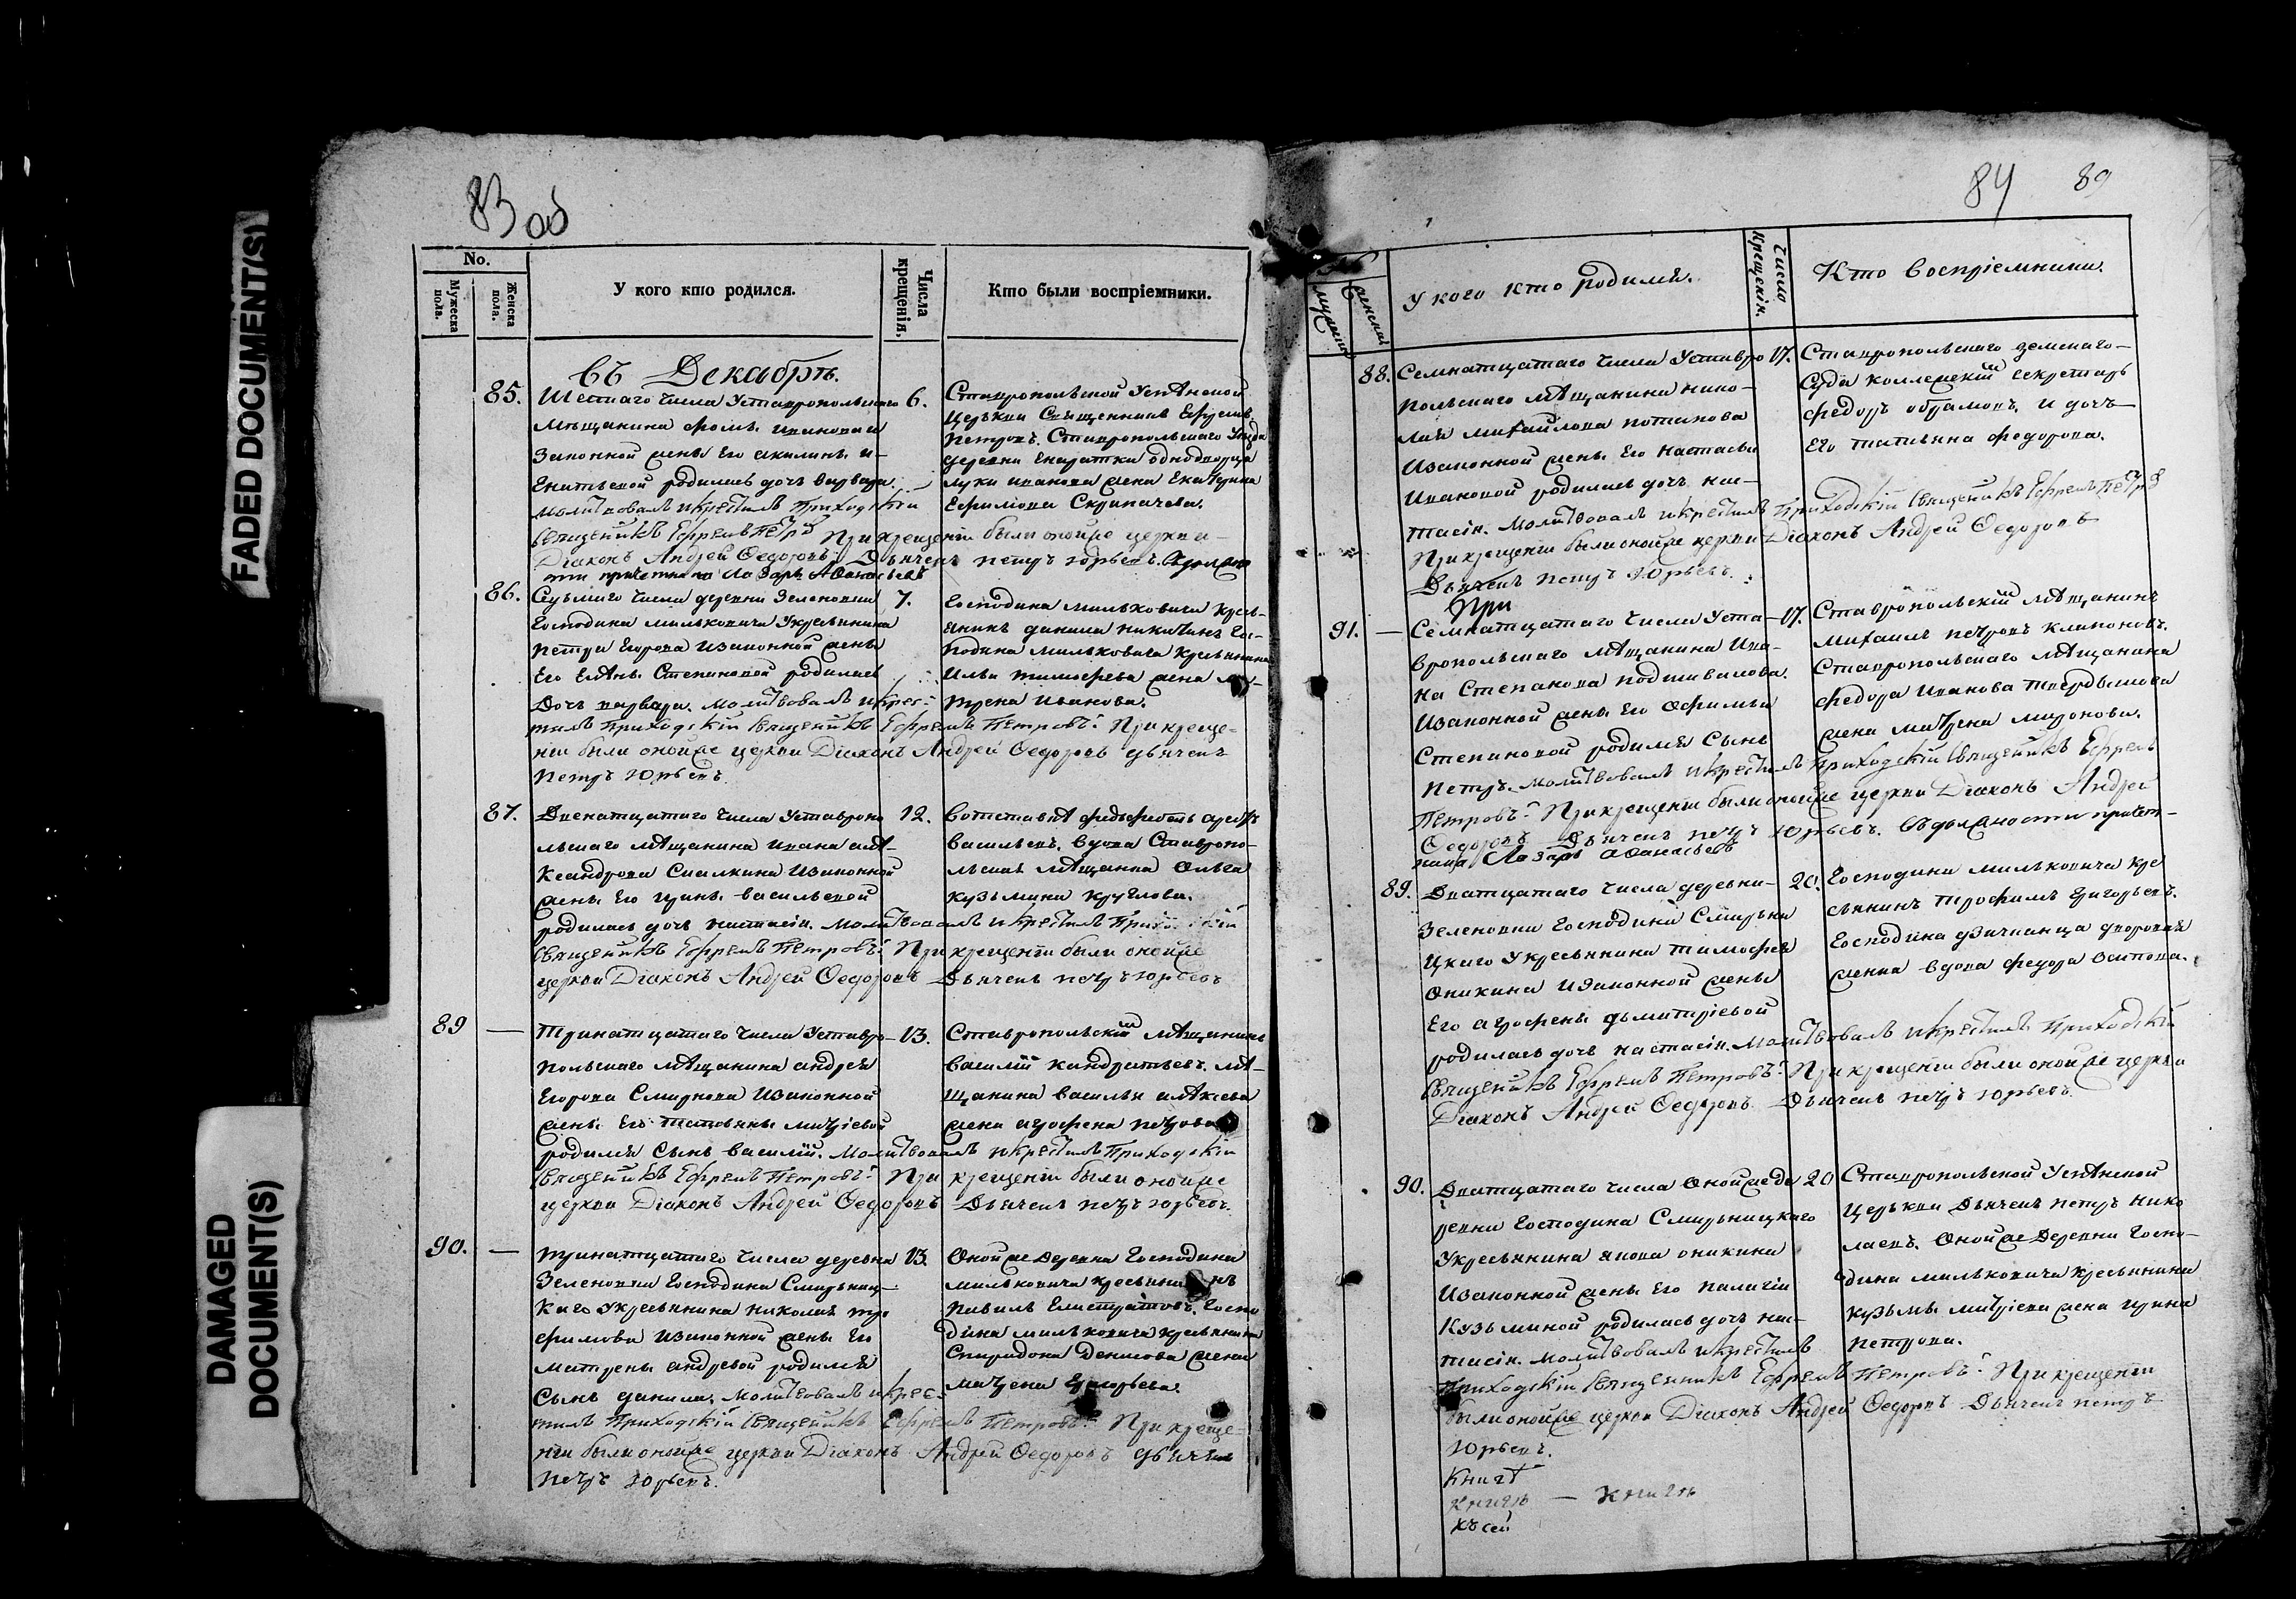 FADED DOCUMENT(S)
DAMAGED
DOCUMENT(S)
83 об
No.
Мужеска пола.
Женска пола.
У кого кто родился.
Числа крещенія.
Кто были воспріемники.
въ Декабрѣ.
85. Шестаго числа Уставропольскаго 6.
мѣщанина Фомы иванова и
Законной жены Его акилины и-
родилась дочь варвара.
молитвовалъ икрестилъ Приходскій
Священникъ Ефремъ Петръ При крещеніи были онойже церкви
Діаконъ Андрей Ѳедоровъ Дьячекъ петръ юрьевъ.
Лазарь Аѳанасьевъ
Ставропольской Успѣнской
Церькви Священникъ Ефремъ
Петровъ. Ставропольскаго Уезда
деревни однодворца
луки иванова жена Екатерина
Ефимова Скрипачева.
86. Седьмаго числа деревни Зеленовки 7.
Господина мильковича Укресьянина
петра Егорова Изаконной жены
Его Елѣны Степановой родилась
Дочь варвара. молитвовалъ икрес-
тилъ Приходскій Священникъ Ефремъ Петровъ. При креще-
ніи были онойже церкви Діаконъ Андрей Ѳедоровъ дьячекъ
петръ юрьевъ.
Господина мильковича кресь-
янинъ данила никитинъ Гос-
подина мильковича кресьянина
Ильи тимофева жена ма-
трена Иванова.
87. Двенатцатаго числа Уставропо 12.
льскаго мѣщанина Ивана алѣ-
Ксандрова Изаконной
жены Его ирины васильевой
родилась дочь настасія. Молитвовалъ икрестилъ Приходскій
Священникъ Ефремъ Петровъ. При крещеніи были онойже
церкви Діаконъ Андрей Ѳедоровъ Дьячекъ петръ юрьевъ
васильевъ. вдова Ставропо-
льская мѣщанка Ольга
кузьмина круглова.
89 — Тринатцатаго числа Уставро- 13.
польскаго мѣщанина андрея
Егорова Смирнова Изаконной
жены Его татьяны митріевой
родился Сынъ василій. Молитвовалъ икрестилъ Приходскій
Священникъ Ефремъ Петровъ. При крещеніи были онойже
церкви Діаконъ Андрей Ѳедоровъ Дьячекъ петръ юрьевъ.
Ставропольскій мѣщанинъ
василій кандратьевъ. мѣ-
щанина василья алѣксева
жена агрофена петрова
90. — тринатцатого числа деревни 13.
Зеленовки Господина Смирниц-
каго Укресьянина николая тро
фимова Изаконной жены Его
матрены андревой родился
Сынъ данила. Молитвовалъ икрес-
тилъ Приходскій Священникъ Ефремъ Петровъ. При креще-
ніи были онойже церкви Діаконъ Андрей Ѳедоровъ дьячекъ
петръ юрьевъ.
Онойже Деревни Господина
мильковича кресьянинъ
павилъ Елистратовъ. Госпо
дина мильковича кресьянина
Спиридона Денисова жена
матрена Григорьева.
84 89
У кого кто родился.
Число Крещенія.
Кто воспріемники.
88. Семнатцатаго числа Уставро 17.
польскаго мѣщанина нико-
лая михайлова потапова
Изаконной жены Его настасьи
Ивановой родилась дочь нас-
тасія. Молитвовалъ икрестилъ Приходскій Священникъ Ефремъ Петръ
При крещеніи были онойже церкви Діаконъ Андрей Ѳедоровъ
Дьячекъ петръ Юрьевъ.
Ставропольскаго земскаго-
Суда коллежскій секретарь
федоръ обрамовъ. и дочь
Его татьяна федорова.
При
91. — Семнатцатаго числа Уста- 17.
вропольскаго мѣщанина Ива-
на Степанова подшивалова.
Изаконной жены Его Офимьи
Степановой родился Сынъ
петръ. молитвовалъ икрестилъ Приходскій Священникъ Ефремъ
Петровъ. При крещеніи были онойже церкви Діаконъ Андрей
Ѳедоровъ Дьячекъ петръ Юрьевъ. Въ должности причет-
ника Лазарь Аѳанасьевъ
Ставропольскій мѣщанинъ
михаилъ петровъ климоновъ.
Ставропольскаго мѣщанина
федора Иванова
жена матрена миронова.
89. Дватцатаго числа деревни- 20.
Зеленовки Господина Смирьни
цкаго Укресьянина тимофея
Оникина Изаконной жены
Его агрофены дьмитріевой
родилась дочь настасія. Молитвовалъ икрестилъ Приходскій
Священникъ Ефремъ Петровъ. При крещеніи были онойже церкви
Діаконъ Андрей Ѳедоровъ. Дьячекъ петръ юрьевъ.
Господина мильковича кре
сьянинъ трофимъ григорьевъ.
Господина дворовая
женка вдова федора Осипова.
90. Дватцатаго числа Онойже де 20
ревни Господина Смирьницкаго
Укресьянина якова оникина
Изаконной жены Его палагіи
Кузьминой родилась дочь нас-
тасія. молитвовалъ икрестилъ
Приходскій Священникъ Ефремъ Петровъ. При крещеніи
были онойже церкви Діаконъ Андрей Ѳедоровъ Дьячекъ петръ
Юрьевъ.
Ставропольской Успѣнской
Церькви Дьячекъ петръ нико
лаевъ. Онойже Деревни Госпо-
дина мильковича кресьянина
кузьмы митріева жена ирина
петрова.
Книгѣ
книгъ — книгъ
къ сей